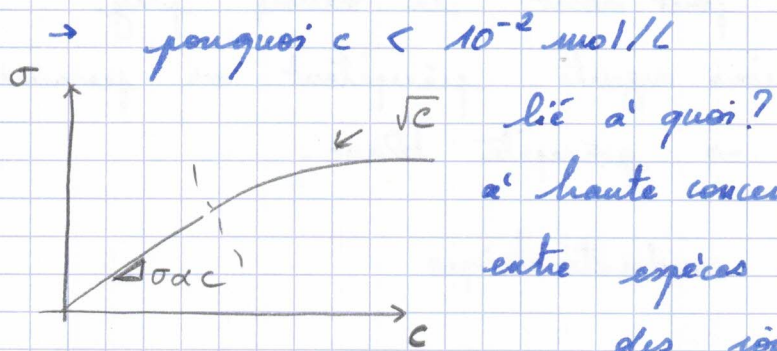 → pourquoi c < 10⁻² mol/L
σ
√C
lié à quoi?
à haute concen
entre espèces
σ∝C
des ion
C